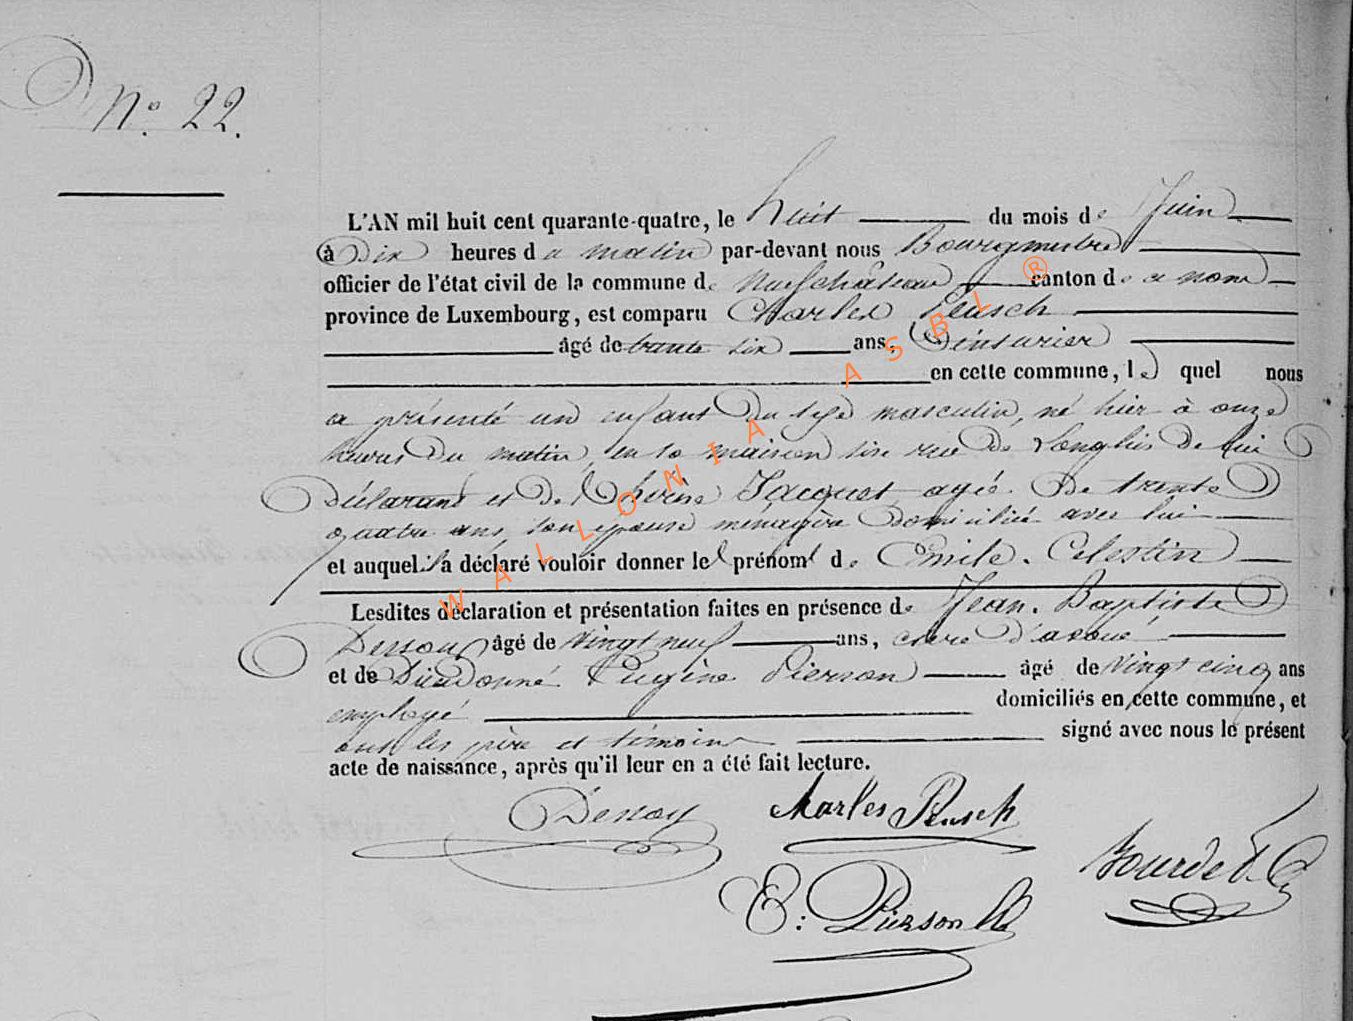 N.° 22.
L'AN mil huit cent quarante-quatre, le huit du mois de Juin
à Dix heures du matin par-devant nous Bourgmestre
officier de l'état civil de la commune de Neufchâteau canton de ce nom
province de Luxembourg, est comparu Charles Peusch
âgé de trente six ans,
en cette commune, lequel nous
a présenté un enfant Du sexe masculin, né hier à onze
heures Du matin, en sa maison sise rue De Longlier De lui
Déclarant et De Thérèse Jacquet agée De trente
quatre ans, son épouse ménagère Domiciliée avec lui
et auquel il a déclaré vouloir donner les prénoms de Emile. Celestin
Lesdites déclaration et présentation faites en présence de Jean. Baptiste
Denoy âgé de vingt neuf ans, clerc D'avoué
et de Dieudonné Eugène Pierson âgé de vingt cinq ans
employé domiciliés en cette commune, et
ont les père et témoins signé avec nous le présent
acte de naissance, après qu'il leur en a été fait lecture.
Denoy Charles Peusch
E: Pierson
WALLONIA ASBL ®